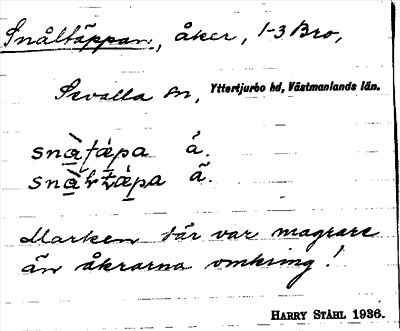 Snåltäppan, åker, 1-3 Bro,
Svalla sn, Yttertjurbo hd, Västmanlands län.
å.
ã.
Marken där var magrare
än åkrarna omkring!
HARRY STÅHL 1936.